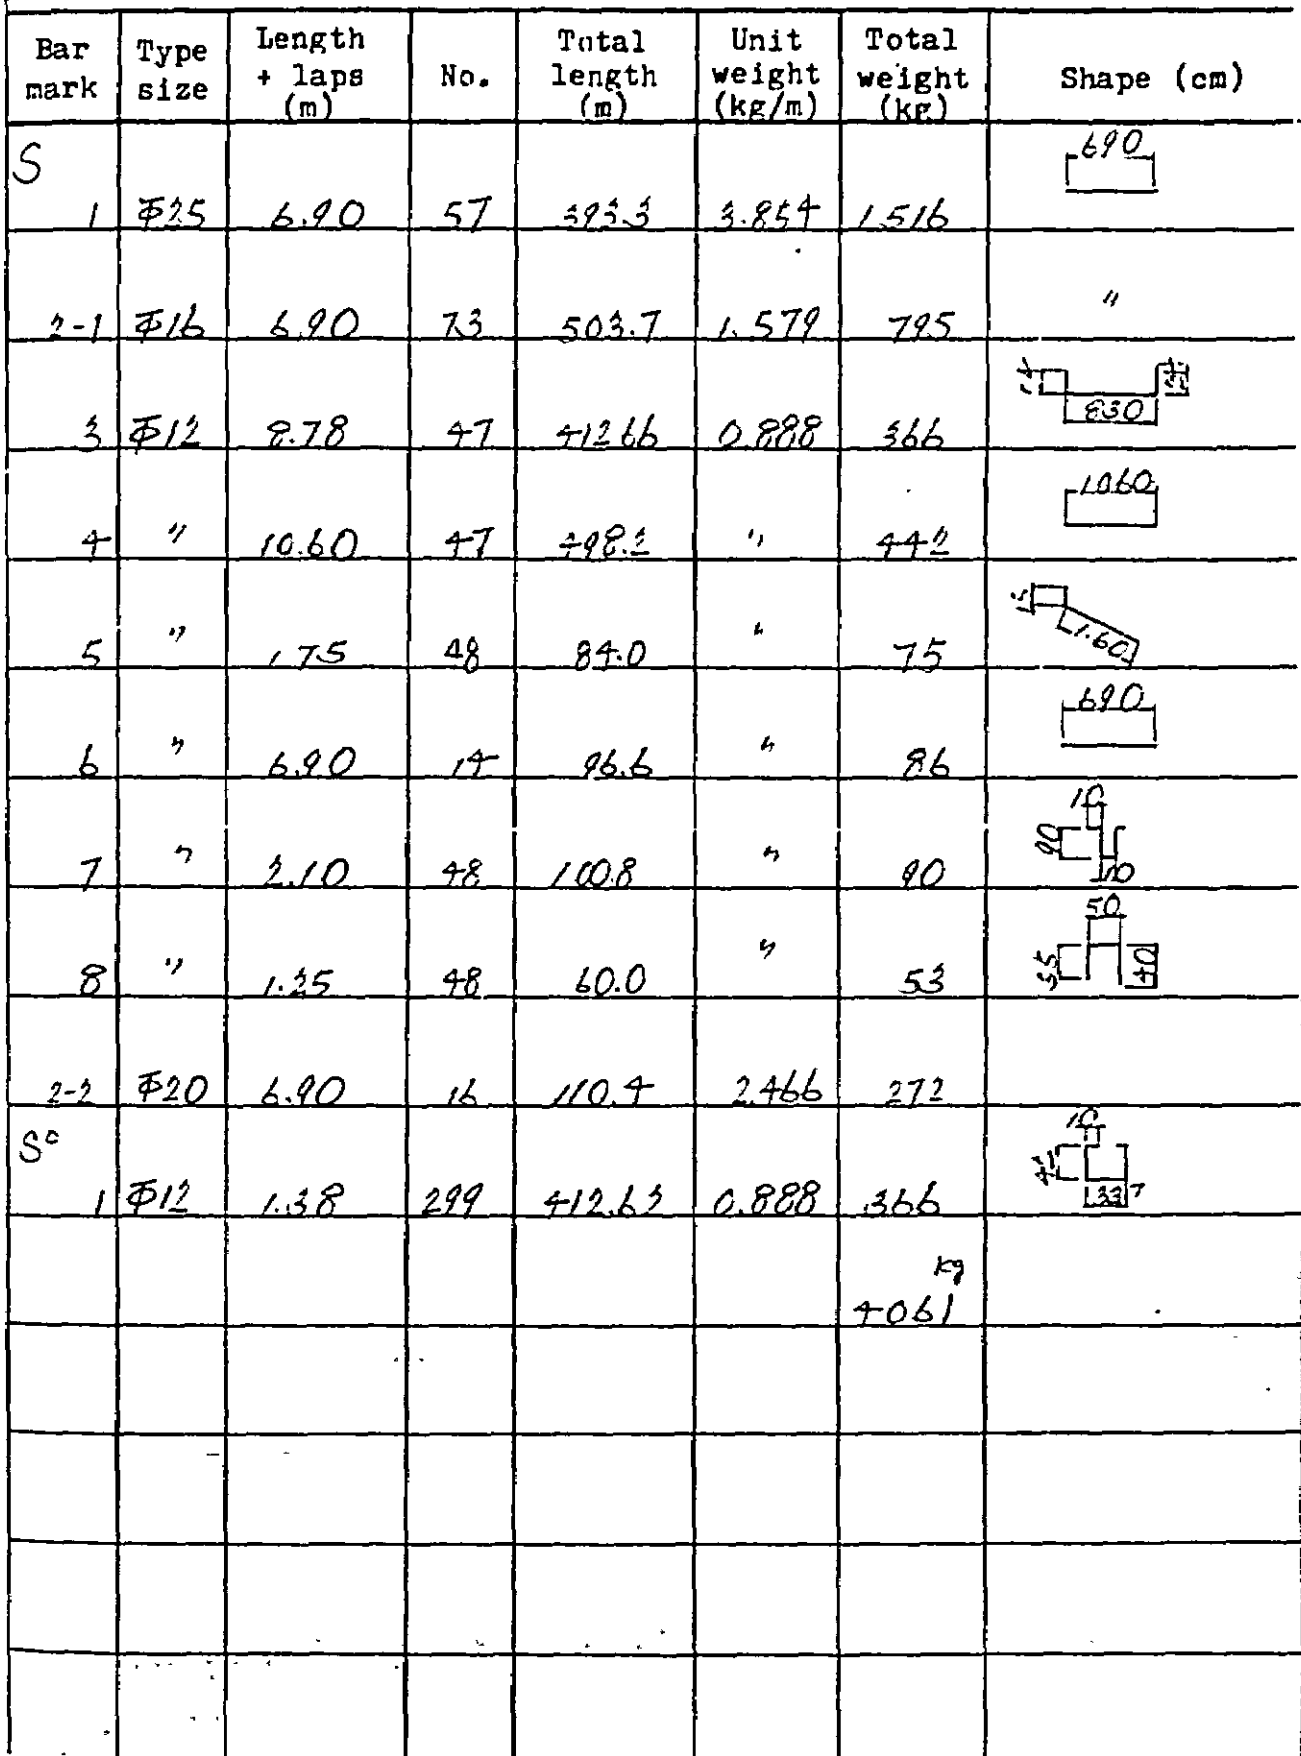 Bar mark Type size Length + laps (m) No. Total length (m) Unit weight (kg/m) Total weight (kg) Shape (cm)
S
690
1 Φ25 6.90 57 393.3 3.854 1516
2-1 Φ16 6.90 73 503.7 1.579 795 "
3 Φ12 8.78 47 412.66 0.888 366 830
4 " 10.60 47 498.2 " 442 1060
5 " 1.75 48 84.0 " 75 15 1.60
6 " 6.90 14 96.6 " 86 690
7 " 2.10 48 100.8 " 90 10 90 10
8 " 1.25 48 60.0 " 53 50 35 40
2-2 Φ20 6.90 16 110.4 2.466 272
Sc
1 Φ12 1.38 299 412.62 0.888 366 10 337
kg
4061